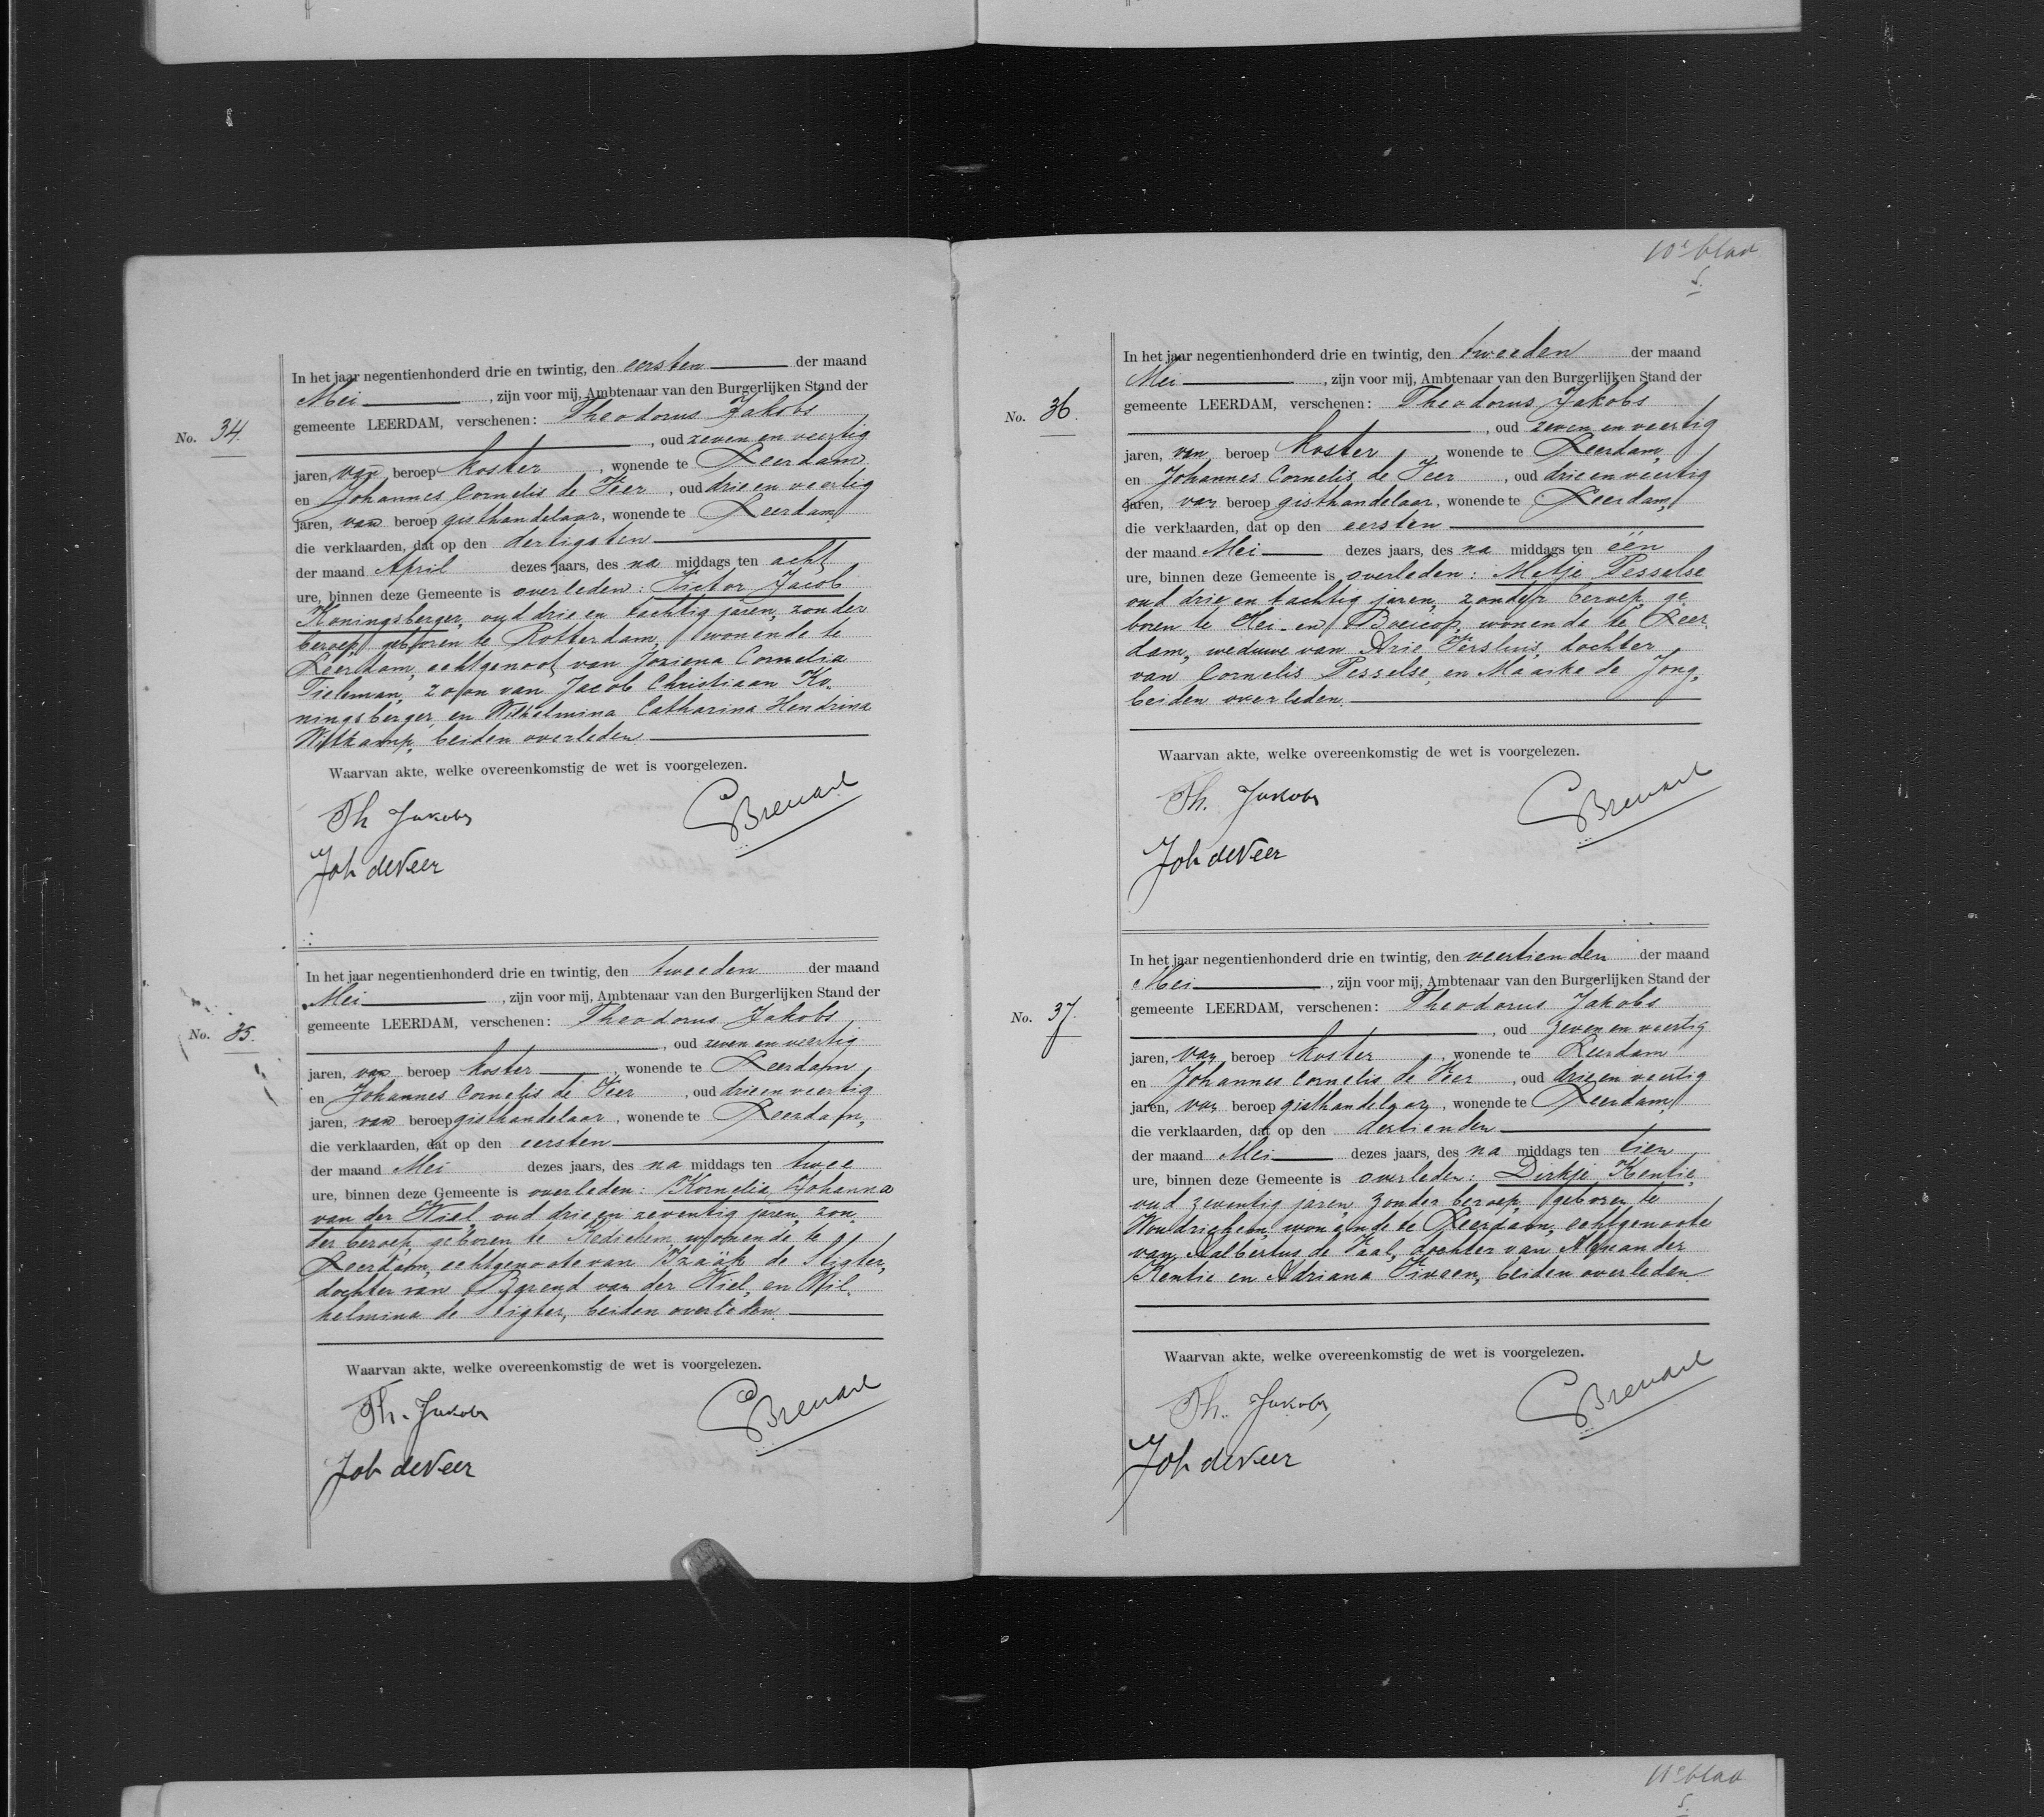 10e blad
S.
No. 34.
In het jaar negentienhonderd drie en twintig, den eersten der maand
Mei, zijn voor mij, Ambtenaar van den Burgerlijken Stand der
gemeente LEERDAM, verschenen: Theodorus Jakobs
, oud zeven en veertig
jaren, van beroep koster, wonende te Leerdam,
en Johannes Cornelis de Veer, oud drie en veertig
jaren, van beroep gisthandelaar, wonende te Leerdam,
die verklaarden, dat op den dertigsten
der maand April dezes jaars, des na middags ten acht
ure, binnen deze Gemeente is overleden: Victor Jacob
Koningsberger, oud drie en tachtig jaren, zonder
beroep, geboren te Rotterdam, wonende te
Leerdam, echtgenoot van Joziena Cornelia
Tieleman, zoon van Jacob Christiaan Ko-
ningsberger en Wilhelmina Catharina Hendrina
Witkamp, beiden overleden
Waarvan akte, welke overeenkomstig de wet is voorgelezen.
Th Jakobs
Joh de Veer
No. 35.
In het jaar negentienhonderd drie en twintig, den tweeden der maand
Mei, zijn voor mij, Ambtenaar van den Burgerlijken Stand der
gemeente LEERDAM, verschenen: Theodorus Jakobs
, oud zeven en veertig
jaren, van beroep koster, wonende te Leerdam
en Johannes Cornelis de Veer, oud drie en veertig
jaren, van beroep gisthandelaar, wonende te Leerdam,
die verklaarden, dat op den eersten
der maand Mei dezes jaars, des na middags ten twee
ure, binnen deze Gemeente is overleden: Kornelia Johanna
van der Wiel, oud drie en zeventig jaren, zon-
der beroep, geboren te Kedichem, wonende te
Leerdam, echtgenoote van Izaäk de Stigter,
dochter van Barend van der Wiel, en Wil-
helmina de Stigter, beiden overleden.
Waarvan akte, welke overeenkomstig de wet is voorgelezen.
Th. Jakobs
Joh de Veer
No. 36.
In het jaar negentienhonderd drie en twintig, den tweeden der maand
Mei, zijn voor mij, Ambtenaar van den Burgerlijken Stand der
gemeente LEERDAM, verschenen: Theodorus Jakobs
, oud zeven en veertig
jaren, van beroep koster, wonende te Leerdam,
en Johannes Cornelis de Veer, oud drie en veertig
jaren, van beroep gisthandelaar, wonende te Leerdam,
die verklaarden, dat op den eersten
der maand Mei dezes jaars, des na middags ten één
ure, binnen deze Gemeente is overleden: Metje Tesselse
oud drie en tachtig jaren, zonder beroep, ge
boren te Hei- en Boeicop, wonende te Leer-
dam, weduwe van Arie Versluis, dochter
van Cornelis Tesselse, en Maaike de Jong,
beiden overleden.
Waarvan akte, welke overeenkomstig de wet is voorgelezen.
Th. Jakobs
Joh de Veer
No. 37.
In het jaar negentienhonderd drie en twintig, den veertienden der maand
Mei, zijn voor mij, Ambtenaar van den Burgerlijken Stand der
gemeente LEERDAM, verschenen: Theodorus Jakobs
, oud zeven en veertig
jaren, van beroep koster, wonende te Leerdam
en Johannes Cornelis de Veer, oud drie en veertig
jaren, van beroep gisthandelaar, wonende te Leerdam,
die verklaarden, dat op den dertienden
der maand Mei dezes jaars, des na middags ten tien
ure, binnen deze Gemeente is overleden: Dirkje Kentie,
oud zeventig jaren, zonder beroep, geboren te
Woudrichem, wonende te Leerdam, echtgenoote
van Aalbertus de Vaal, dochter van
Kentie en Adriana beiden overleden
Waarvan akte, welke overeenkomstig de wet is voorgelezen.
Th. Jakobs,
Joh de Veer
11e blad
S.